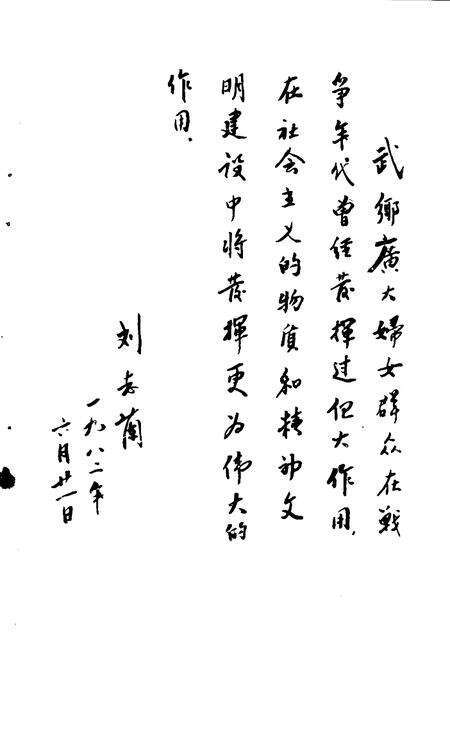 武鄉廣大婦女群众在戰
争年代曾经发揮过巨大作用，
在社会主义的物质和精神文
明建设中将发揮更为伟大的
作用。
刘志蘭
一九八二年
六月廿一日